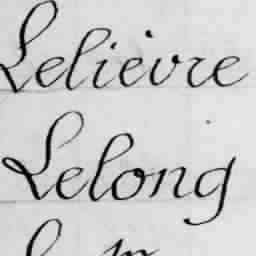 Lelièvre
Lelong